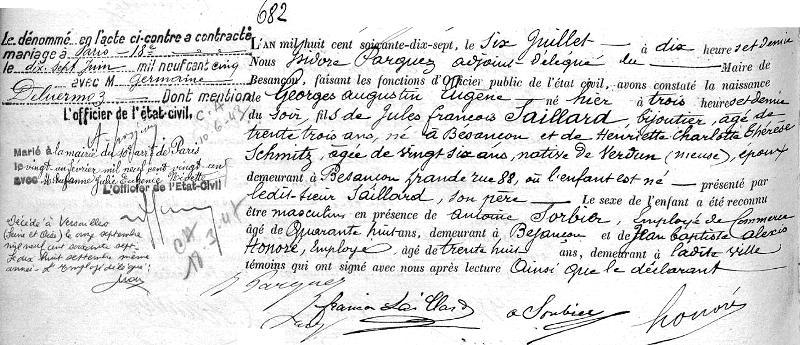 682
Le dénommé en l'acte ci-contre a contracté
mariage à Paris 18e
le dix-sept Juin mil neuf cent cinq
avec M Germaine
Delvermoz Dont mention
L'officier de l'état-civil,
Marié à la mairie du 16e arrt de Paris
le vingt un février mil neuf cent vingt
avec M Suzanne Julie Eugénie
L'Officier de l'Etat-Civil
Décédé à Versailles
(Seine et Oise) le onze septembre
mil neuf cent cinquante sept.
Le dix huit septembre même
année. L'Employé délégué:
L'AN mil huit cent soixante-dix-sept, le Six Juillet à dix heures et demie
Nous Isidore Parguez adjoint délégué du Maire de
Besançon, faisant les fonctions d'Officier public de l'état civil, avons constaté la naissance
de Georges Augustin Eugène né hier à trois heures et demie
du soir, fils de Jules François Saillard, bijoutier, âgé de
trente trois ans, né à Besançon et de Henriette Charlotte Thérèse
Schmitz, agée de vingt six ans, native de Verdun (Meuse), époux
demeurant à Besançon grande rue 88, où l'enfant est né présenté par
ledit sieur Saillard, son père Le sexe de l'enfant a été reconnu
être masculin en présence de Antoine Sorbier, Employé de Commerce
âgé de Quarante huit ans, demeurant à Besançon et de Jean Baptiste Alexis
Honoré, Employé, âgé de trente huit ans, demeurant à ladite ville
témoins qui ont signé avec nous après lecture Ainsi que le déclarant
Parguez
françois Saillard
a Sorbier
honoré